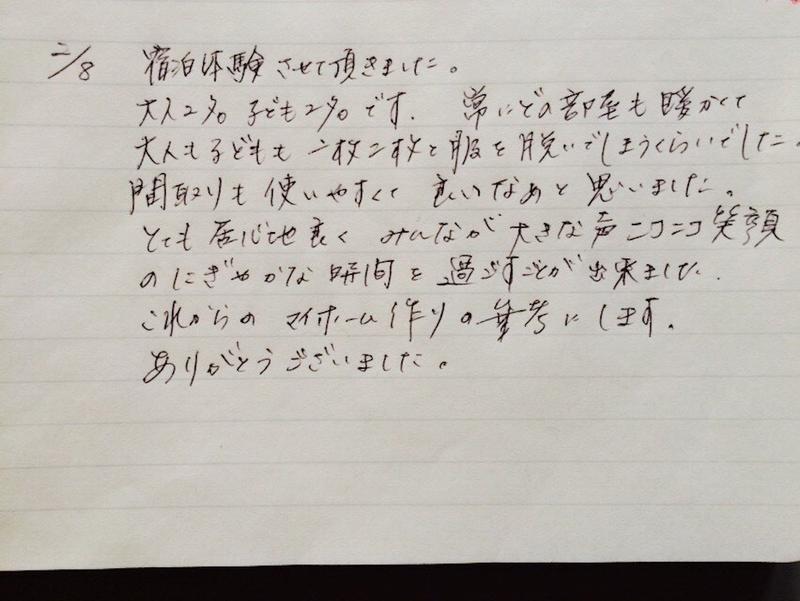 2/8 宿泊体験させて頂きました。
大人2名。子ども2名です。常にどの部屋も暖かくて
大人も子どもも一枚二枚と服を脱いでしまうくらいでした。
間取りも使いやすくて良いなあと思いました。
とても居心地良くみんなが大きな声ニコニコ笑顔
のにぎやかな時間を過ごすごとが出来ました.
これからのマイホーム作りの参考にします.
ありがとうございました。